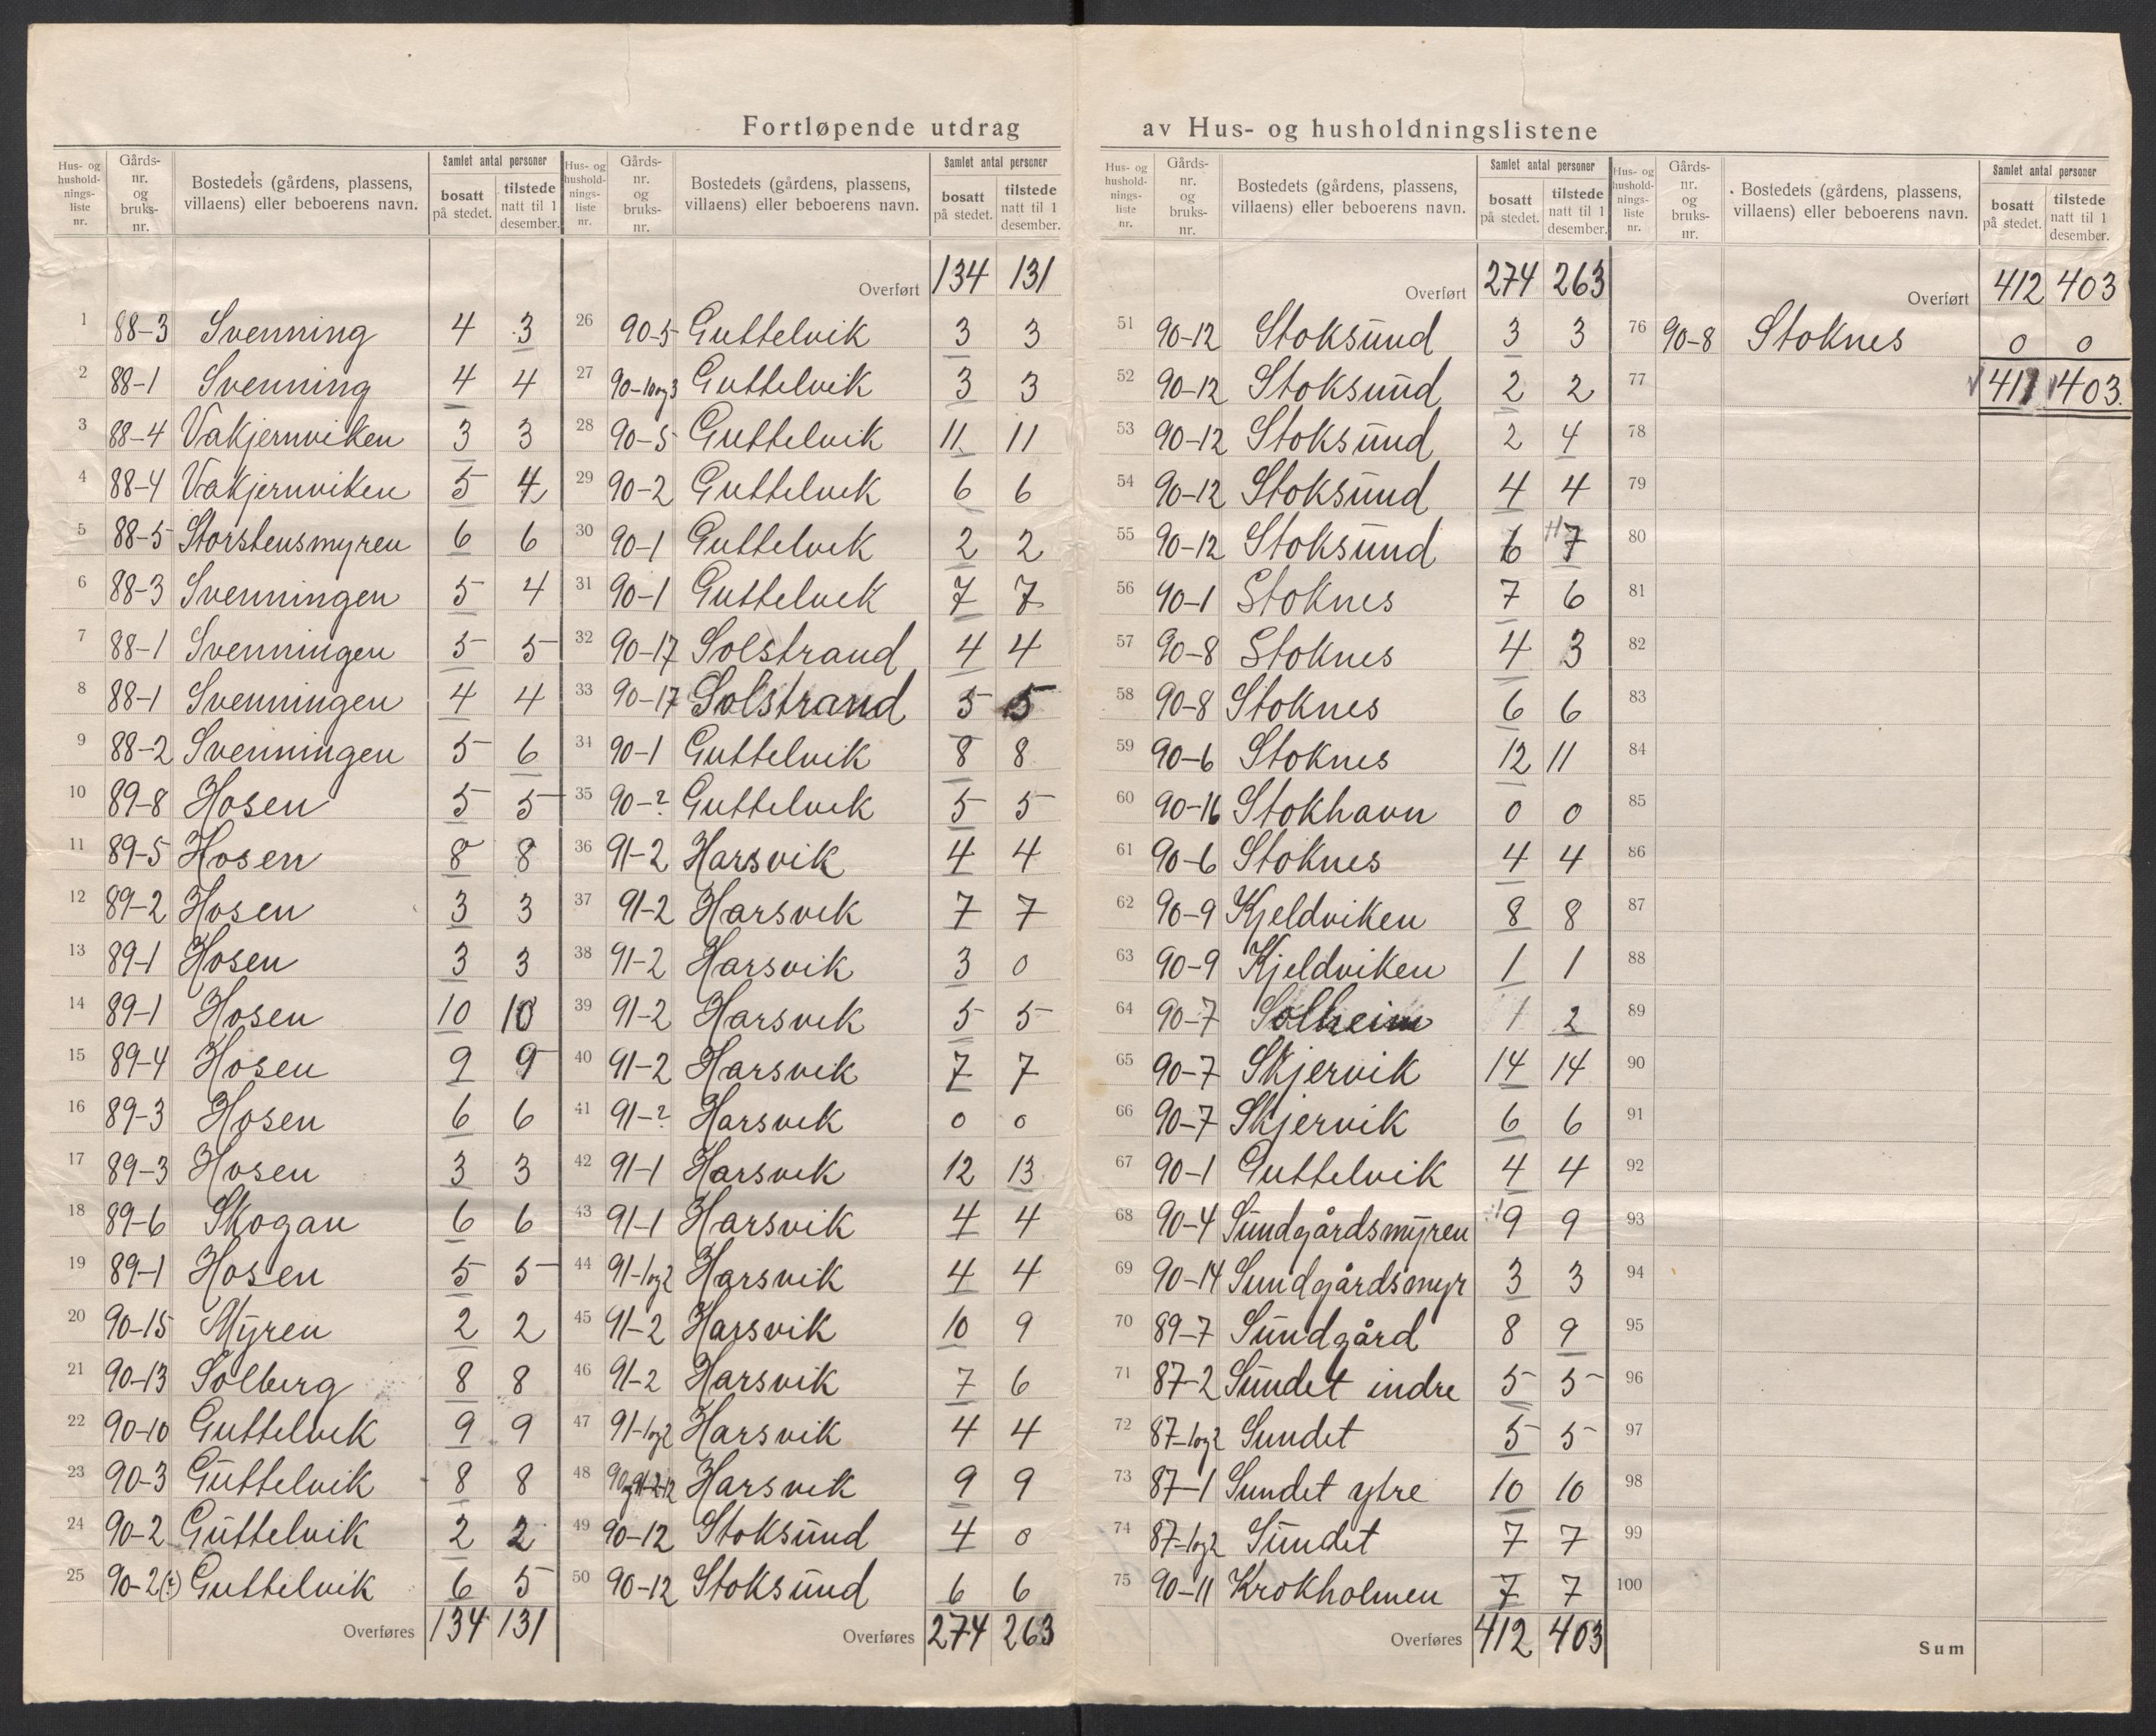 Fortløpende utdrag av Hus- og husholdningslistene
Hus- og husholdnings-liste nr. | Gårds-nr. og bruks-nr. | Bostedets (gårdens, plassens, villaens) eller beboerens navn. | Samlet antal personer bosatt på stedet. | tilstede natt til 1 desember.
1 88-3 Svenning 4 3
2 88-1 Svenning 4 4
3 88-4 Vakjernviken 3 3
4 88-4 Vakjernviken 5 4
5 88-5 Storstensmyren 6 6
6 88-3 Svenningen 5 4
7 88-1 Svenningen 5 5
8 88-1 Svenningen 4 4
9 88-2 Svenningen 5 6
10 89-8 Hosen 5 5
11 89-5 Hosen 8 8
12 89-2 Hosen 3 3
13 89-1 Hosen 3 3
14 89-1 Hosen 10 10
15 89-4 Hosen 9 9
16 89-3 Hosen 6 6
17 89-3 Hosen 3 3
18 89-6 Skogan 6 6
19 89-1 Hosen 5 5
20 90-15 Myren 2 2
21 90-13 Solberg 8 8
22 90-10 Guttelvik 9 9
23 90-3 Guttelvik 8 8
24 90-2 Guttelvik 2 2
25 90-2(?) Guttelvik 6 5
Overføres 134 131
Hus- og husholdnings-liste nr. | Gårds-nr. og bruks-nr. | Bostedets (gårdens, plassens, villaens) eller beboerens navn. | Samlet antal personer bosatt på stedet. | tilstede natt til 1 desember.
Overført 134 131
26 90-5 Guttelvik 3 3
27 90-10og3 Guttelvik 3 3
28 90-5 Guttelvik 11 11
29 90-2 Guttelvik 6 6
30 90-1 Guttelvik 2 2
31 90-1 Guttelvik 7 7
32 90-17 Solstrand 4 4
33 90-17 Solstrand 5 5
34 90-1 Guttelvik 8 8
35 90-? Guttelvik 5 5
36 91-2 Harsvik 4 4
37 91-2 Harsvik 7 7
38 91-2 Harsvik 3 0
39 91-2 Harsvik 5 5
40 91-2 Harsvik 7 7
41 91-? Harsvik 0 0
42 91-1 Harsvik 12 13
43 91-1 Harsvik 4 4
44 91-1og2 Harsvik 4 4
45 91-2 Harsvik 10 9
46 91-2 Harsvik 7 6
47 91-1og2 Harsvik 4 4
48 Harsvik 9 9
49 90-12 Stoksund 4 0
50 90-12 Stoksund 6 6
Overføres 274 263
Hus- og husholdnings-liste nr. | Gårds-nr. og bruks-nr. | Bostedets (gårdens, plassens, villaens) eller beboerens navn. | Samlet antal personer bosatt på stedet. | tilstede natt til 1 desember.
Overført 274 263
51 90-12 Stoksund 3 3
52 90-12 Stoksund 2 2
53 90-12 Stoksund 2 4
54 90-12 Stoksund 4 4
55 90-12 Stoksund 6 7
56 90-1 Stoknes 7 6
57 90-8 Stoknes 4 3
58 90-8 Stoknes 6 6
59 90-6 Stoknes 12 11
60 90-16 Stokhavn 0 0
61 90-6 Stoknes 4 4
62 90-9 Kjeldviken 8 8
63 90-9 Kjeldviken 1 1
64 90-7 Solheim 1 2
65 90-7 Skjervik 14 14
66 90-7 Skjervik 6 6
67 90-1 Guttelvik 4 4
68 90-4 Sundgårdsmyren 9 9
69 90-14 Sundgårdsmyr 3 3
70 89-7 Sundgård 8 9
71 87-2 Sundet indre 5 5
72 87-1og2 Sundet 5 5
73 87-1 Sundet ytre 10 10
74 87-1og2 Sundet 7 7
75 90-11 Krokholmen 7 7
Overføres 412 403
Hus- og husholdnings-liste nr. | Gårds-nr. og bruks-nr. | Bostedets (gårdens, plassens, villaens) eller beboerens navn. | Samlet antal personer bosatt på stedet. | tilstede natt til 1 desember.
Overført 412 403
76 90-8 Stoknes 0 0
77 411 403
78
79
80
81
82
83
84
85
86
87
88
89
90
91
92
93
94
95
96
97
98
99
100
Sum